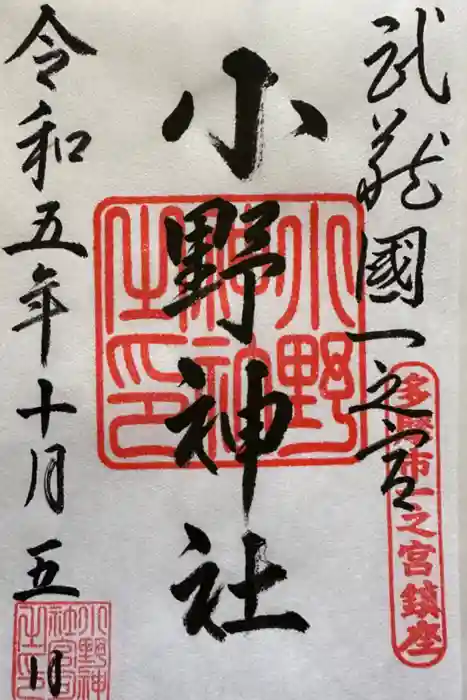 武蔵國一之宮
多摩市一之宮鎮座
小野神社
小野神社之印
令和五年十月五日
小野神社宮司之印